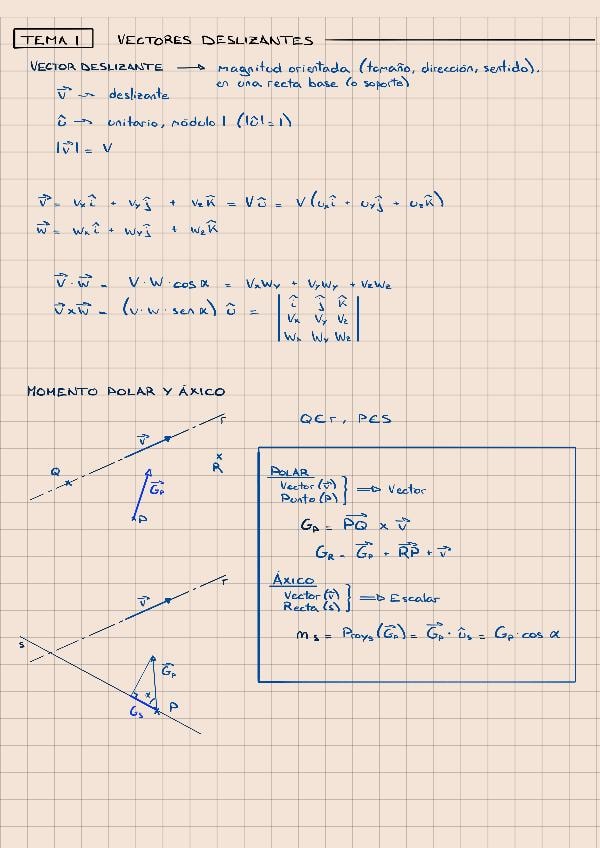 TEMA 1 VECTORES DESLIZANTES
VECTOR DESLIZANTE → magnitud orientada (tamaño, dirección, sentido).
en una recta base (o soporte)
v⃗ → deslizante
û → unitario, módulo 1 (|û| = 1)
|v⃗| = V
v⃗ = Vxî + Vyĵ + Vzk̂ = Vû = V(uxî + uyĵ + uzk̂)
w⃗ = Wxî + Wyĵ + Wzk̂
v⃗·w⃗ = V·W·cos α = VxWy + VyWy + VzWz
v⃗×w⃗ = (V·W·sen α) û = | î ĵ k̂
Vx Vy Vz
Wx Wy Wz |
MOMENTO POLAR Y ÁXICO
r
v⃗
Q
R
G⃗p
P
Q∈r, P∈S
POLAR
Vector (v⃗)
Punto (P) } ⇒ Vector
Gp = PQ⃗ × v⃗
GR = G⃗p + RP⃗ + v⃗
ÁXICO
Vector (v⃗)
Recta (s) } ⇒ Escalar
ms = Proys(G⃗p) = G⃗p · ûs = Gp · cos α
r
v⃗
s
G⃗p
α
P
Gs